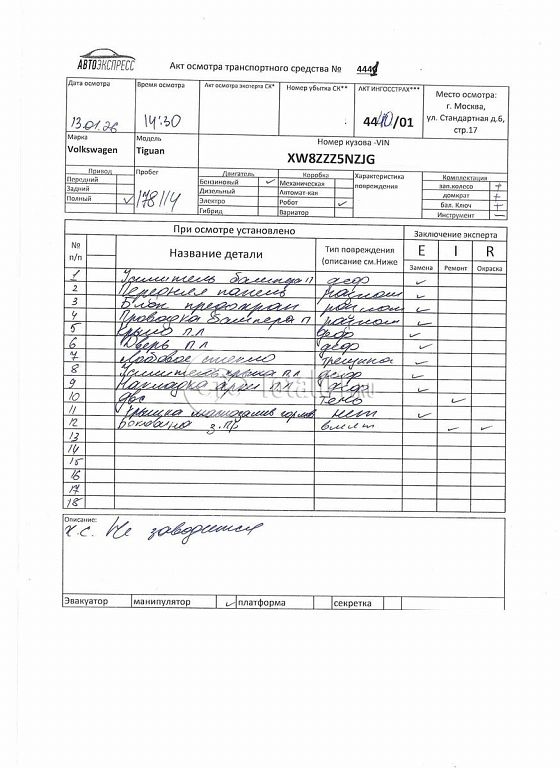 АВТОЭКСПРЕСС
Акт осмотра транспортного средства № 4441
Дата осмотра Время осмотра Акт осмотра эксперта СК* Номер убытка СК** АКТ ИНГОССТРАХ*** Место осмотра:
г. Москва,
ул. Стандартная д.6,
стр.17
13.01.26 14:30 4440/01
Марка Модель Номер кузова -VIN
Volkswagen Tiguan XW8ZZZ5NZJG
Привод Пробег Двигатель Коробка Характеристика повреждения Комплектация
Передний Бензиновый ✓ Механическая зап.колесо +
Задний Дизельный Автомат-как домкрат +
Полный ✓ 178114 Электро Робот ✓ бал. Ключ +
Гибрид Вариатор Инструмент —
При осмотре установлено Заключение эксперта
№ п/п Название детали Тип повреждения (описание см.Ниже E I R
Замена Ремонт Окраска
1 Усилитель бампера п деф ✓
2 Передняя панель разлом ✓
3 Блок предохран разлом ✓
4 Проводка бампера п разлом ✓
5 Крыло п.л деф ✓
6 Дверь п.л деф ✓
7 Лобовое стекло трещина ✓
8 Усилитель крыла п.л деф ✓
9 Накладка арки п.л деф ✓
10 двс ✓
11 Крышка маслозалив горлов нет ✓
12 Боковина з.пр вмят ✓ ✓
13
14
15
16
17
18
Описание:
Не заводится
Эвакуатор манипулятор ✓ платформа секретка